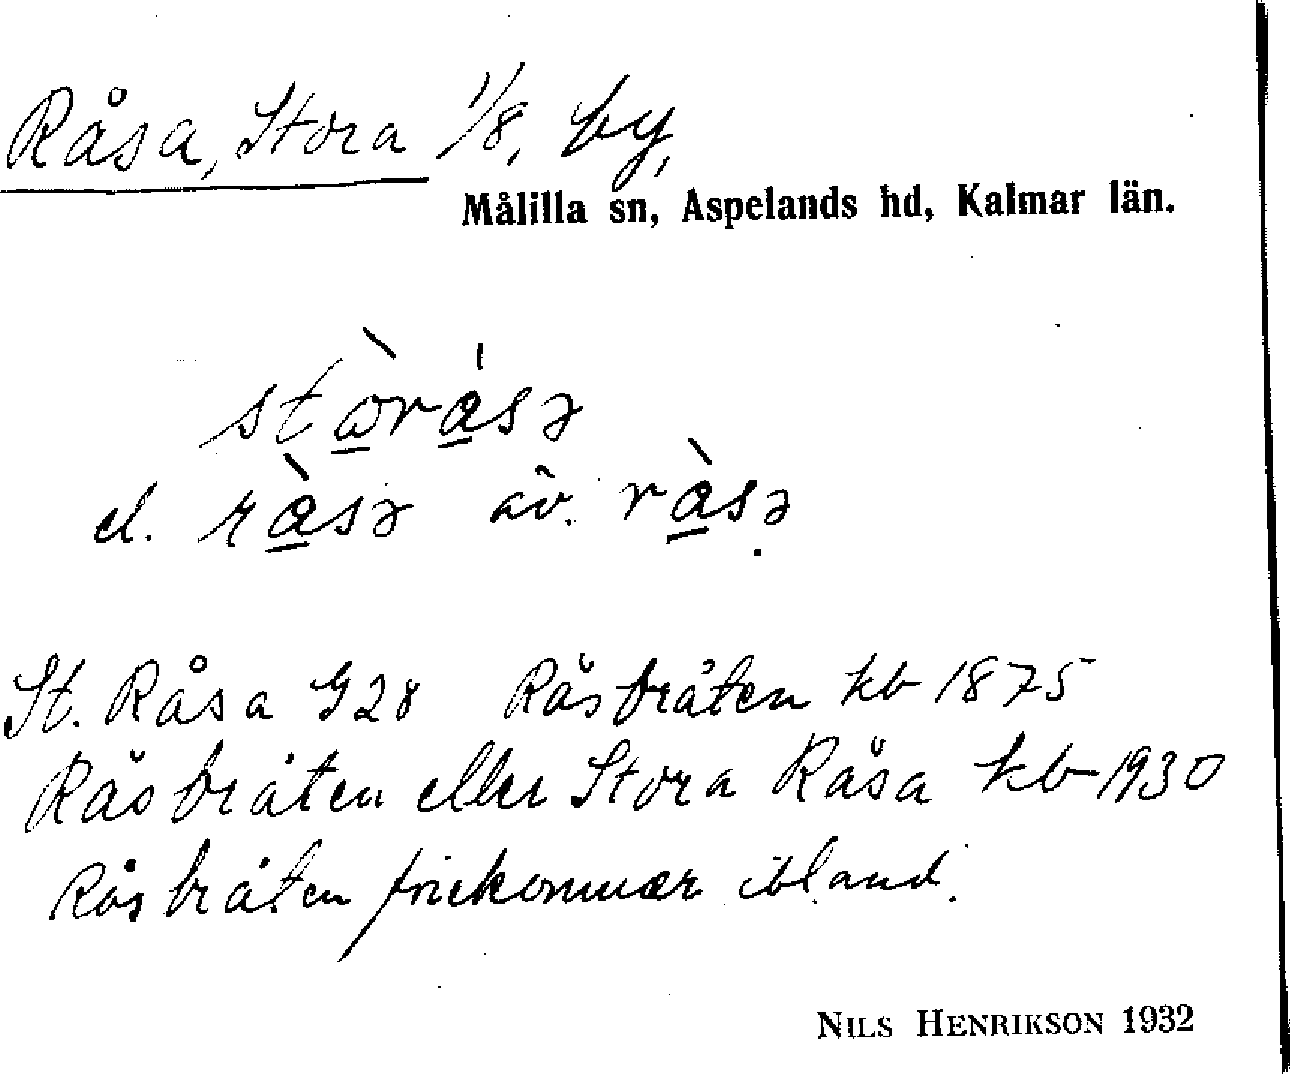 Råsa, Stora 1/8, by,
Målilla sn, Aspelands hd, Kalmar län.
el. av.
St. Råsa G28 Råsbråten kb 1875
Råsbråten eller Stora Råsa kb 1930
Råsbråten förekommer ibland.
NILS HENRIKSON 1932